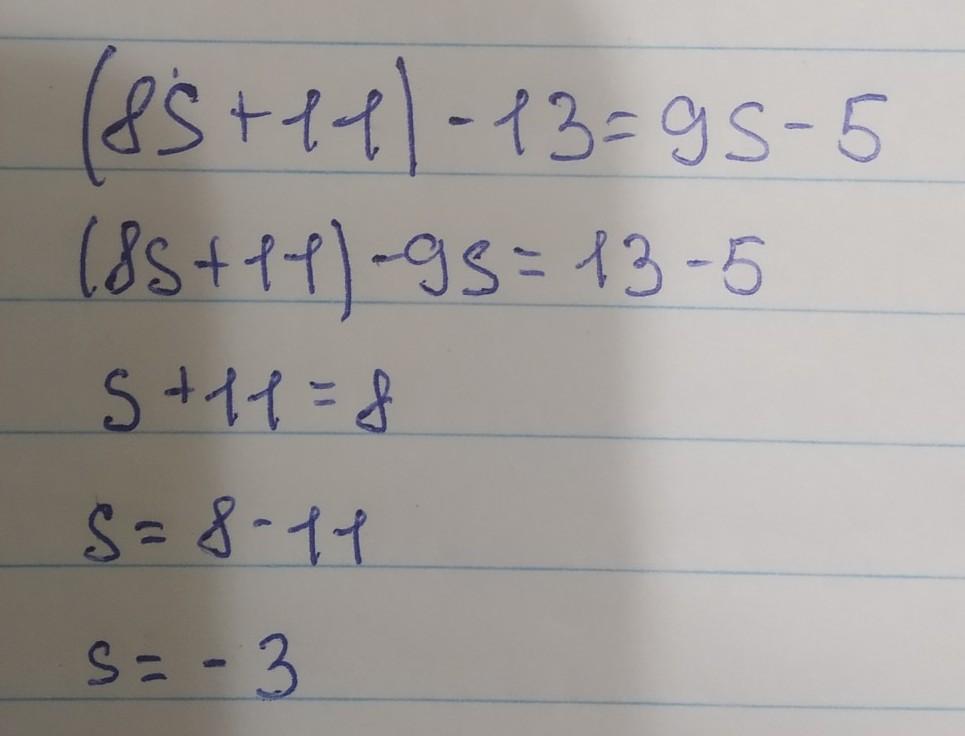 (8s+11)-13=9s-5
(8s+11)-9s=13-5
s+11=8
s=8-11
s=-3